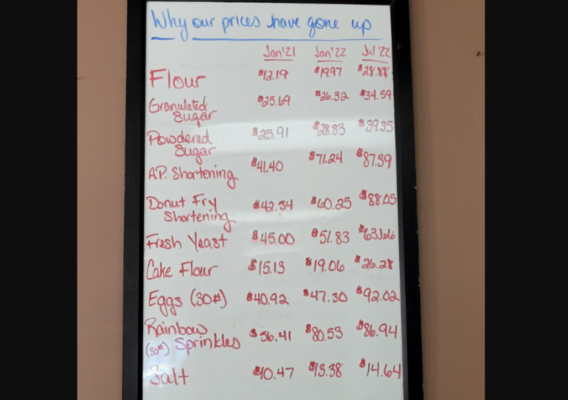 Why our prices have gone up
Jan'21 Jan'22 Jul'22
Flour $12.19 $19.97 $28.88
Granulated $25.69 $26.32 $34.59
Sugar
Powdered $25.91 $28.83 $39.35
Sugar
A.P. Shortening $41.40 $71.24 $87.59
Donut Fry $42.34 $60.25 $88.05
Shortening
Fresh Yeast $45.00 $51.83 $63.66
Cake Flour $15.13 $19.06 $26.28
Eggs (30#) $40.92 $47.30 $92.02
Rainbow $56.41 $80.53 $86.94
Sprinkles
Salt $10.47 $13.38 $14.64